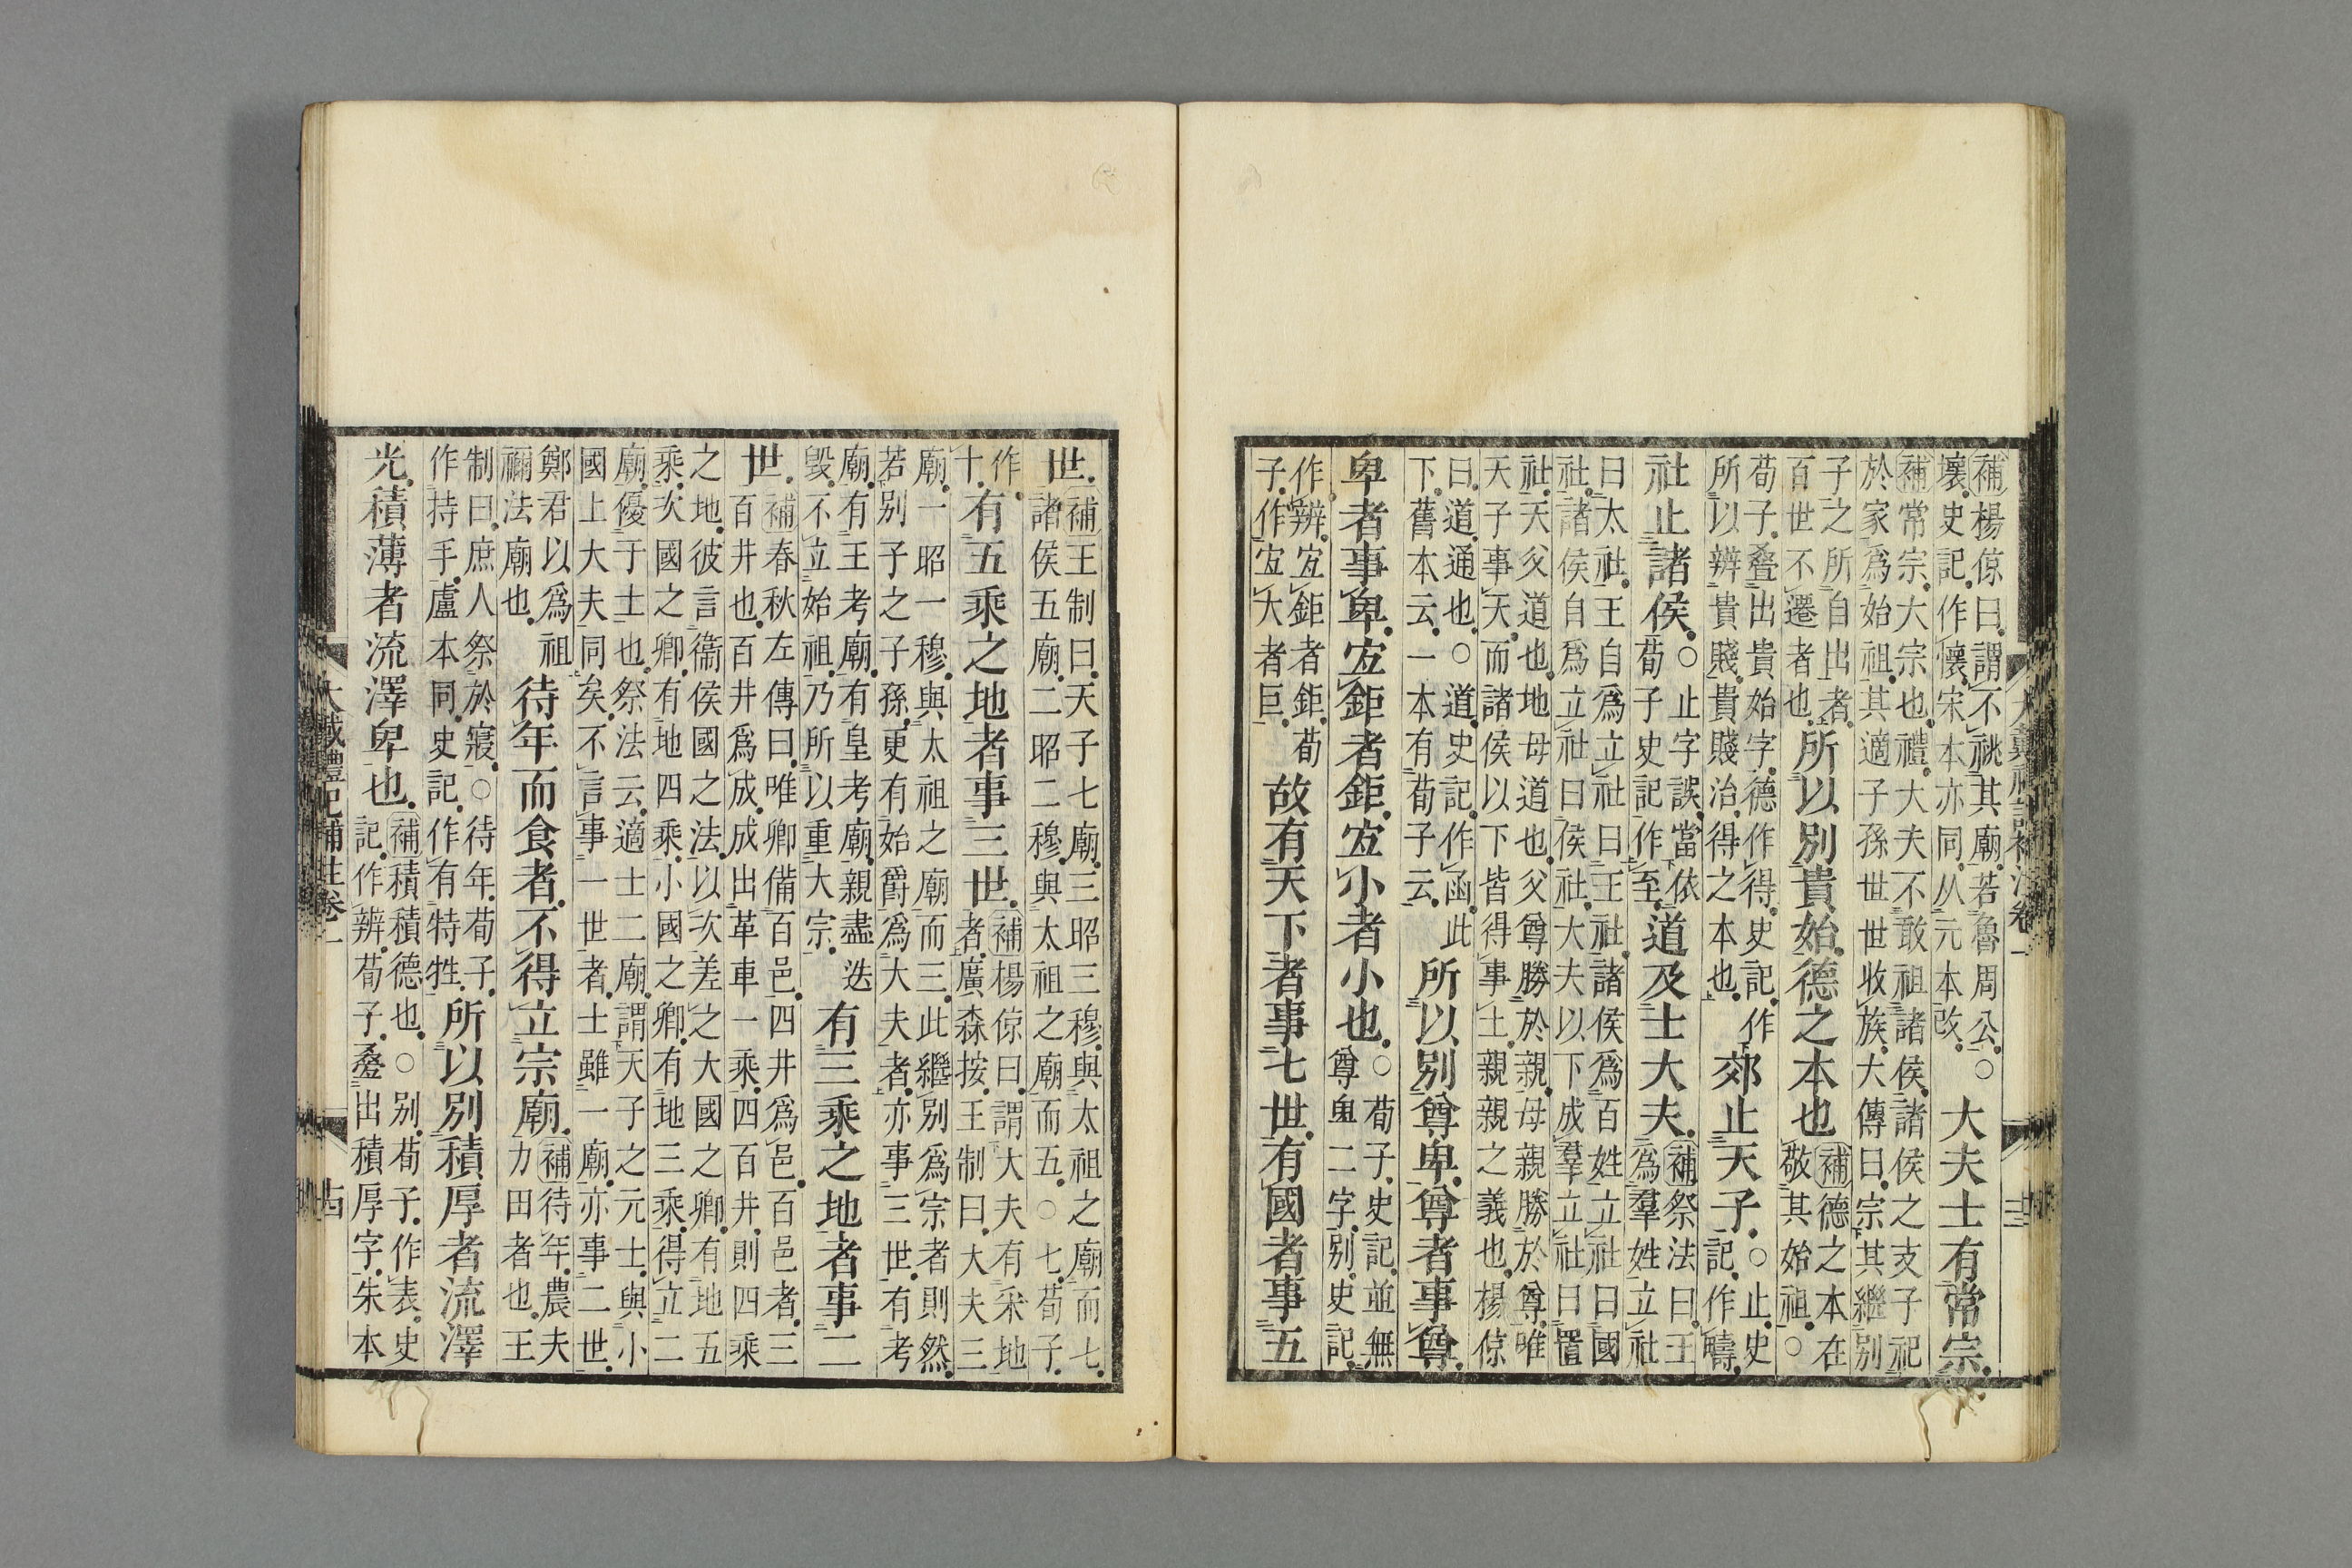 補楊倞曰謂不祧其廟若魯周公○
壞史記作懷宋本亦同从元本改
大夫士有常宗
補常宗大宗也禮大夫不敢祖諸侯諸侯之支子祀
於家爲始祖其適子孫世世收族大傳曰宗其繼别
子之所自出者
百世不遷者也
所以別貴始德之本也
補德之本在
敬其始祖○
荀子疊出貴始字德作得史記作
所以辨貴賤貴賤治得之本也
郊止天子
○止史
記作疇
社止諸侯
○止字誤當依
荀子史記作至
道及士大夫
補祭法曰王
爲羣姓立社
曰太社王自爲立社曰王社諸侯爲百姓立社曰國
社諸侯自爲立社曰侯社大夫以下成羣立社曰置
社天父道也地母道也父尊勝於親母親勝於尊唯
天子事天而諸侯以下皆得事土親親之義也楊倞
曰道通也○道史記作函此
下舊本云一本有荀子云
所以別尊卑尊者事尊
卑者事卑宐鉅者鉅宐小者小也
○荀子史記並無
尊卑二字别史記
作辨宐鉅者鉅荀
子作宐大者巨
故有天下者事七世有國者事五
世
補王制曰天子七廟三昭三穆與太祖之廟而七
諸侯五廟二昭二穆與太祖之廟而五○七荀子
作
十
有五乘之地者事三世
補楊倞曰謂大夫有采地
者廣森按王制曰大夫三
廟一昭一穆與太祖之廟而三此繼别爲宗者則然
若别子之子孫更有始爵爲大夫者亦事三世有考
廟有王考廟有皇考廟親盡迭
毁不立始祖乃所以重大宗
有三乘之地者事二
世
補春秋左傳曰唯卿備百邑四井爲邑百邑者三
百井也百井爲成成出革車一乘四百井則四乘
之地彼言衞侯國之法以次差之大國之卿有地五
乘次國之卿有地四乘小國之卿有地三乘得立二
廟優于士也祭法云適士二廟謂天子之元士與小
國上大夫同矣不言事一世者士雖一廟亦事二世
鄭君以爲祖
禰法廟也
待年而食者不得立宗廟
補待年農夫
力田者也王
制曰庶人祭於寢○待年荀子
作持手盧本同史記作有特牲
所以別積厚者流澤
光積薄者流澤卑也
補積積德也○别荀子作表史
記作辨荀子疊出積厚字朱本
大戴禮記補注卷一
十四